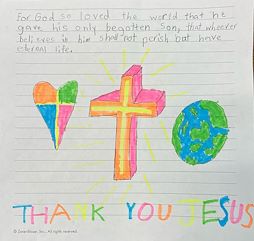 For God so loved the world that he
gave his only begotten Son, that whoever
believes in him shall not perish but have
eternal life.
THANK YOU JESUS
All rights reserved.